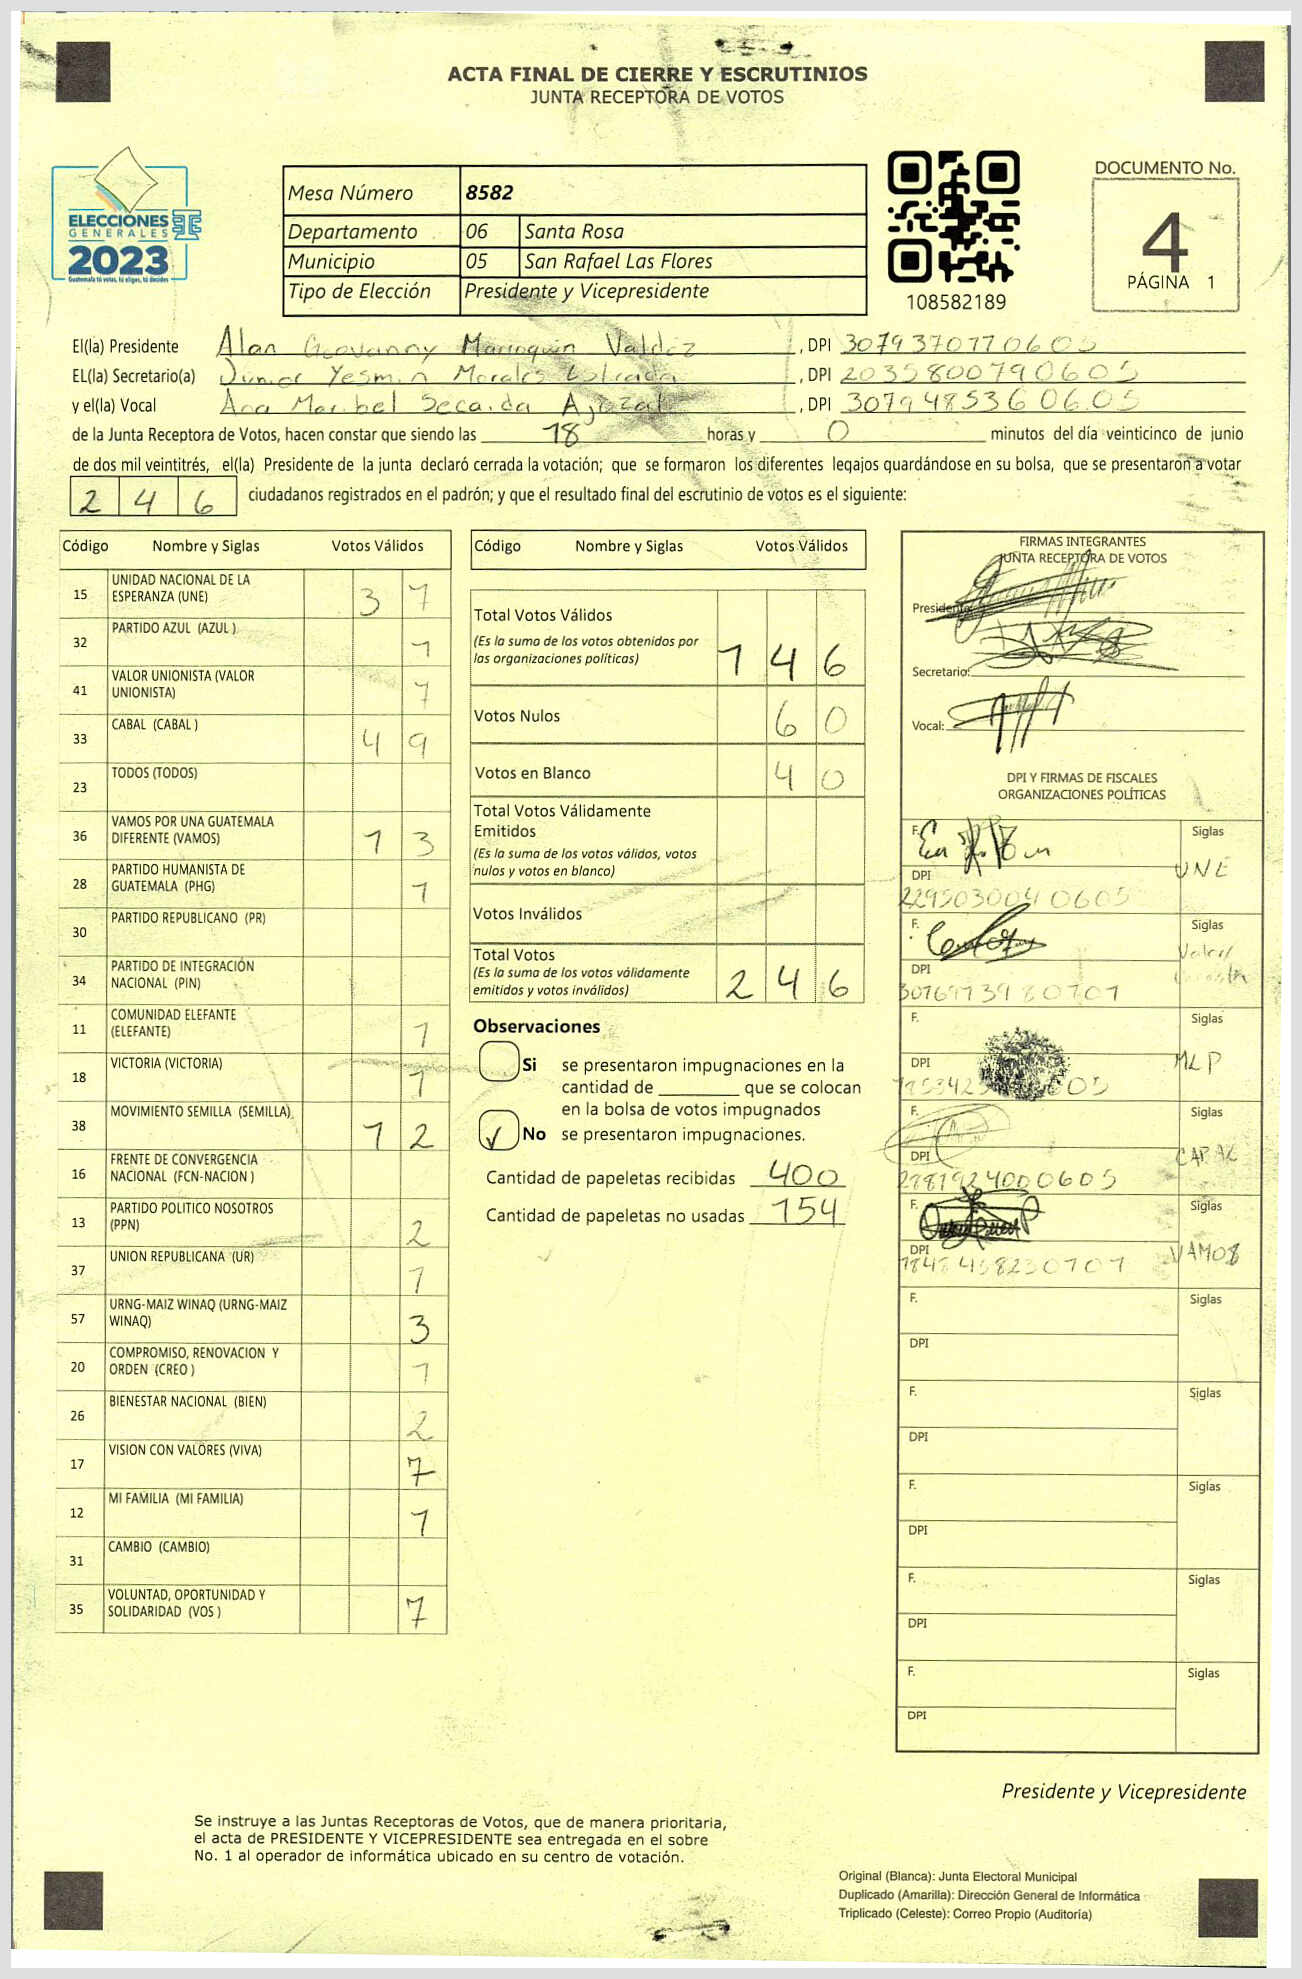 ACTA FINAL DE CIERRE Y ESCRUTINIOS
JUNTA RECEPTORA DE VOTOS
ELECCIONES
GENERALES
2023
Guatemala tú votas, tú eliges, tú decides
Mesa Número 8582
Departamento 06 Santa Rosa
Municipio 05 San Rafael Las Flores
Tipo de Elección Presidente y Vicepresidente
108582189
DOCUMENTO No.
4
PÁGINA 1
El(la) Presidente Alan Geovanny Marroquin Valdéz, DPI 3079370110605
EL(la) Secretario(a) Junior Yesmin Morales Estrada, DPI 2035800790605
y el(la) Vocal Ana Maribel Secaida, DPI 3079485360605
de la Junta Receptora de Votos, hacen constar que siendo las 18 horas y 0 minutos del día veinticinco de junio
de dos mil veintitrés, el(la) Presidente de la junta declaró cerrada la votación; que se formaron los diferentes legajos guardándose en su bolsa, que se presentaron a votar
2 4 6 ciudadanos registrados en el padrón; y que el resultado final del escrutinio de votos es el siguiente:
Código Nombre y Siglas Votos Válidos
15 UNIDAD NACIONAL DE LA
ESPERANZA (UNE) 3 7
32 PARTIDO AZUL (AZUL ) 1
41 VALOR UNIONISTA (VALOR
UNIONISTA) 7
33 CABAL (CABAL ) 4 9
23 TODOS (TODOS)
36 VAMOS POR UNA GUATEMALA
DIFERENTE (VAMOS) 1 3
28 PARTIDO HUMANISTA DE
GUATEMALA (PHG) 1
30 PARTIDO REPUBLICANO (PR)
34 PARTIDO DE INTEGRACIÓN
NACIONAL (PIN)
11 COMUNIDAD ELEFANTE
(ELEFANTE) 1
18 VICTORIA (VICTORIA) 1
38 MOVIMIENTO SEMILLA (SEMILLA) 1 2
16 FRENTE DE CONVERGENCIA
NACIONAL (FCN-NACION )
13 PARTIDO POLITICO NOSOTROS
(PPN) 2
37 UNION REPUBLICANA (UR) 1
57 URNG-MAIZ WINAQ (URNG-MAIZ
WINAQ) 3
20 COMPROMISO, RENOVACION Y
ORDEN (CREO ) 1
26 BIENESTAR NACIONAL (BIEN) 2
17 VISION CON VALORES (VIVA) 7
12 MI FAMILIA (MI FAMILIA) 1
31 CAMBIO (CAMBIO)
35 VOLUNTAD, OPORTUNIDAD Y
SOLIDARIDAD (VOS ) 7
Código Nombre y Siglas Votos Válidos
Total Votos Válidos
(Es la suma de los votos obtenidos por
las organizaciones políticas) 1 4 6
Votos Nulos 6 0
Votos en Blanco 4 0
Total Votos Válidamente
Emitidos
(Es la suma de los votos válidos, votos
nulos y votos en blanco)
Votos Inválidos
Total Votos
(Es la suma de los votos válidamente
emitidos y votos inválidos) 2 4 6
Observaciones
Si se presentaron impugnaciones en la
cantidad de ________ que se colocan
en la bolsa de votos impugnados
✓ No se presentaron impugnaciones.
Cantidad de papeletas recibidas 400
Cantidad de papeletas no usadas 154
FIRMAS INTEGRANTES
JUNTA RECEPTORA DE VOTOS
Presidente:
Secretario:
Vocal:
DPI Y FIRMAS DE FISCALES
ORGANIZACIONES POLÍTICAS
F. Siglas
UNE
DPI
2295030040605
F. Siglas
Valor
DPI
F. Siglas
MLP
DPI
F. Siglas
DPI
F. Siglas
VAMOS
DPI
F. Siglas
DPI
F. Siglas
DPI
F. Siglas
DPI
F. Siglas
DPI
F. Siglas
DPI
Presidente y Vicepresidente
Se instruye a las Juntas Receptoras de Votos, que de manera prioritaria,
el acta de PRESIDENTE Y VICEPRESIDENTE sea entregada en el sobre
No. 1 al operador de informática ubicado en su centro de votación.
Original (Blanca): Junta Electoral Municipal
Duplicado (Amarilla): Dirección General de Informática
Triplicado (Celeste): Correo Propio (Auditoría)